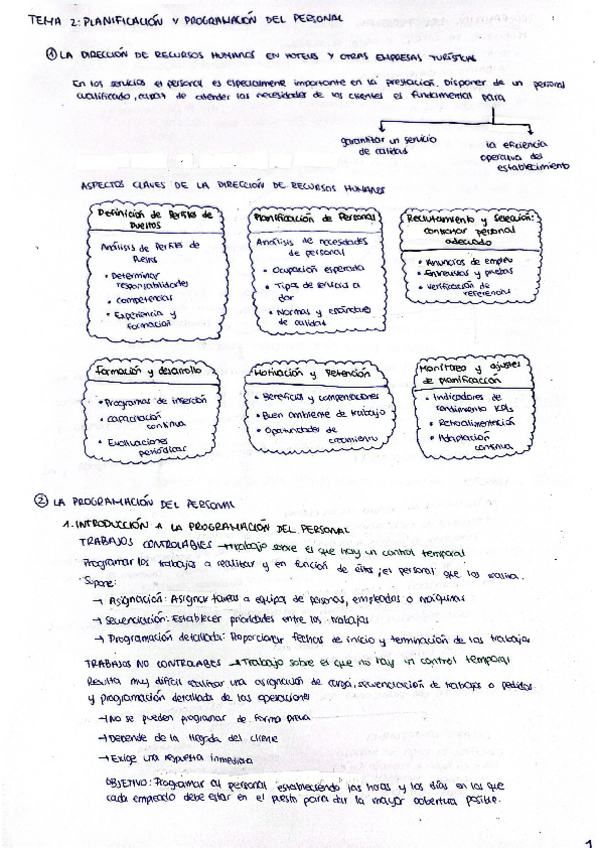 TEMA 2: PLANIFICACIÓN Y PROGRAMACIÓN DEL PERSONAL
① LA DIRECCIÓN DE RECURSOS HUMANOS EN HOTELES Y OTRAS EMPRESAS TURÍSTICAS
En los servicios el personal es especialmente importante en la prestación. Disponer de un personal
cualificado, capaz de atender las necesidades de los clientes es fundamental para
garantizar un servicio
de calidad
la eficiencia
operativa del
establecimiento
ASPECTOS CLAVES DE LA DIRECCIÓN DE RECURSOS HUMANOS
Definición de Perfiles de
Puestos
Análisis de Perfiles de
Puestos
• Determinar
responsabilidades
• Competencias
• Experiencia y
formación
Planificación de Personal
Análisis de necesidades
de personal
• Ocupación esperada
• Tipos de servicios a
dar
• Normas y estándares
de calidad
Reclutamiento y Selección:
contratar personal
adecuado
• Anuncios de empleo
• Entrevistas y pruebas
• Verificación de
referencias
Formación y desarrollo
• Programas de inserción
• Capacitación
continua
• Evaluaciones
periódicas
Motivación y Retención
• Beneficios y compensaciones
• Buen ambiente de trabajo
• Oportunidades de
crecimiento
Monitoreo y ajustes
de planificación
• Indicadores de
rendimiento KPIs
• Retroalimentación
• Adaptación
continua
② LA PROGRAMACIÓN DEL PERSONAL
1. INTRODUCCIÓN A LA PROGRAMACIÓN DEL PERSONAL
TRABAJOS CONTROLABLES → trabajo sobre el que hay un control temporal
Programar los trabajos a realizar y en función de estos, el personal que los realiza.
Supone:
→ Asignación: Asignar tareas a equipos de personas, empleados o máquinas
→ Secuenciación: Establecer prioridades entre los trabajos
→ Programación detallada: Proporcionar fechas de inicio y terminación de los trabajos
TRABAJOS NO CONTROLABLES → Trabajo sobre el que no hay un control temporal
Resulta muy difícil realizar una asignación de carga, secuenciación de trabajos o pedidos
y programación detallada de las operaciones
→ No se pueden programar de forma previa
→ Depende de la llegada del cliente
→ Exige una respuesta inmediata
OBJETIVO: Programar al personal estableciendo las horas y los días en los que
cada empleado debe estar en el puesto para dar la mayor cobertura posible.
1